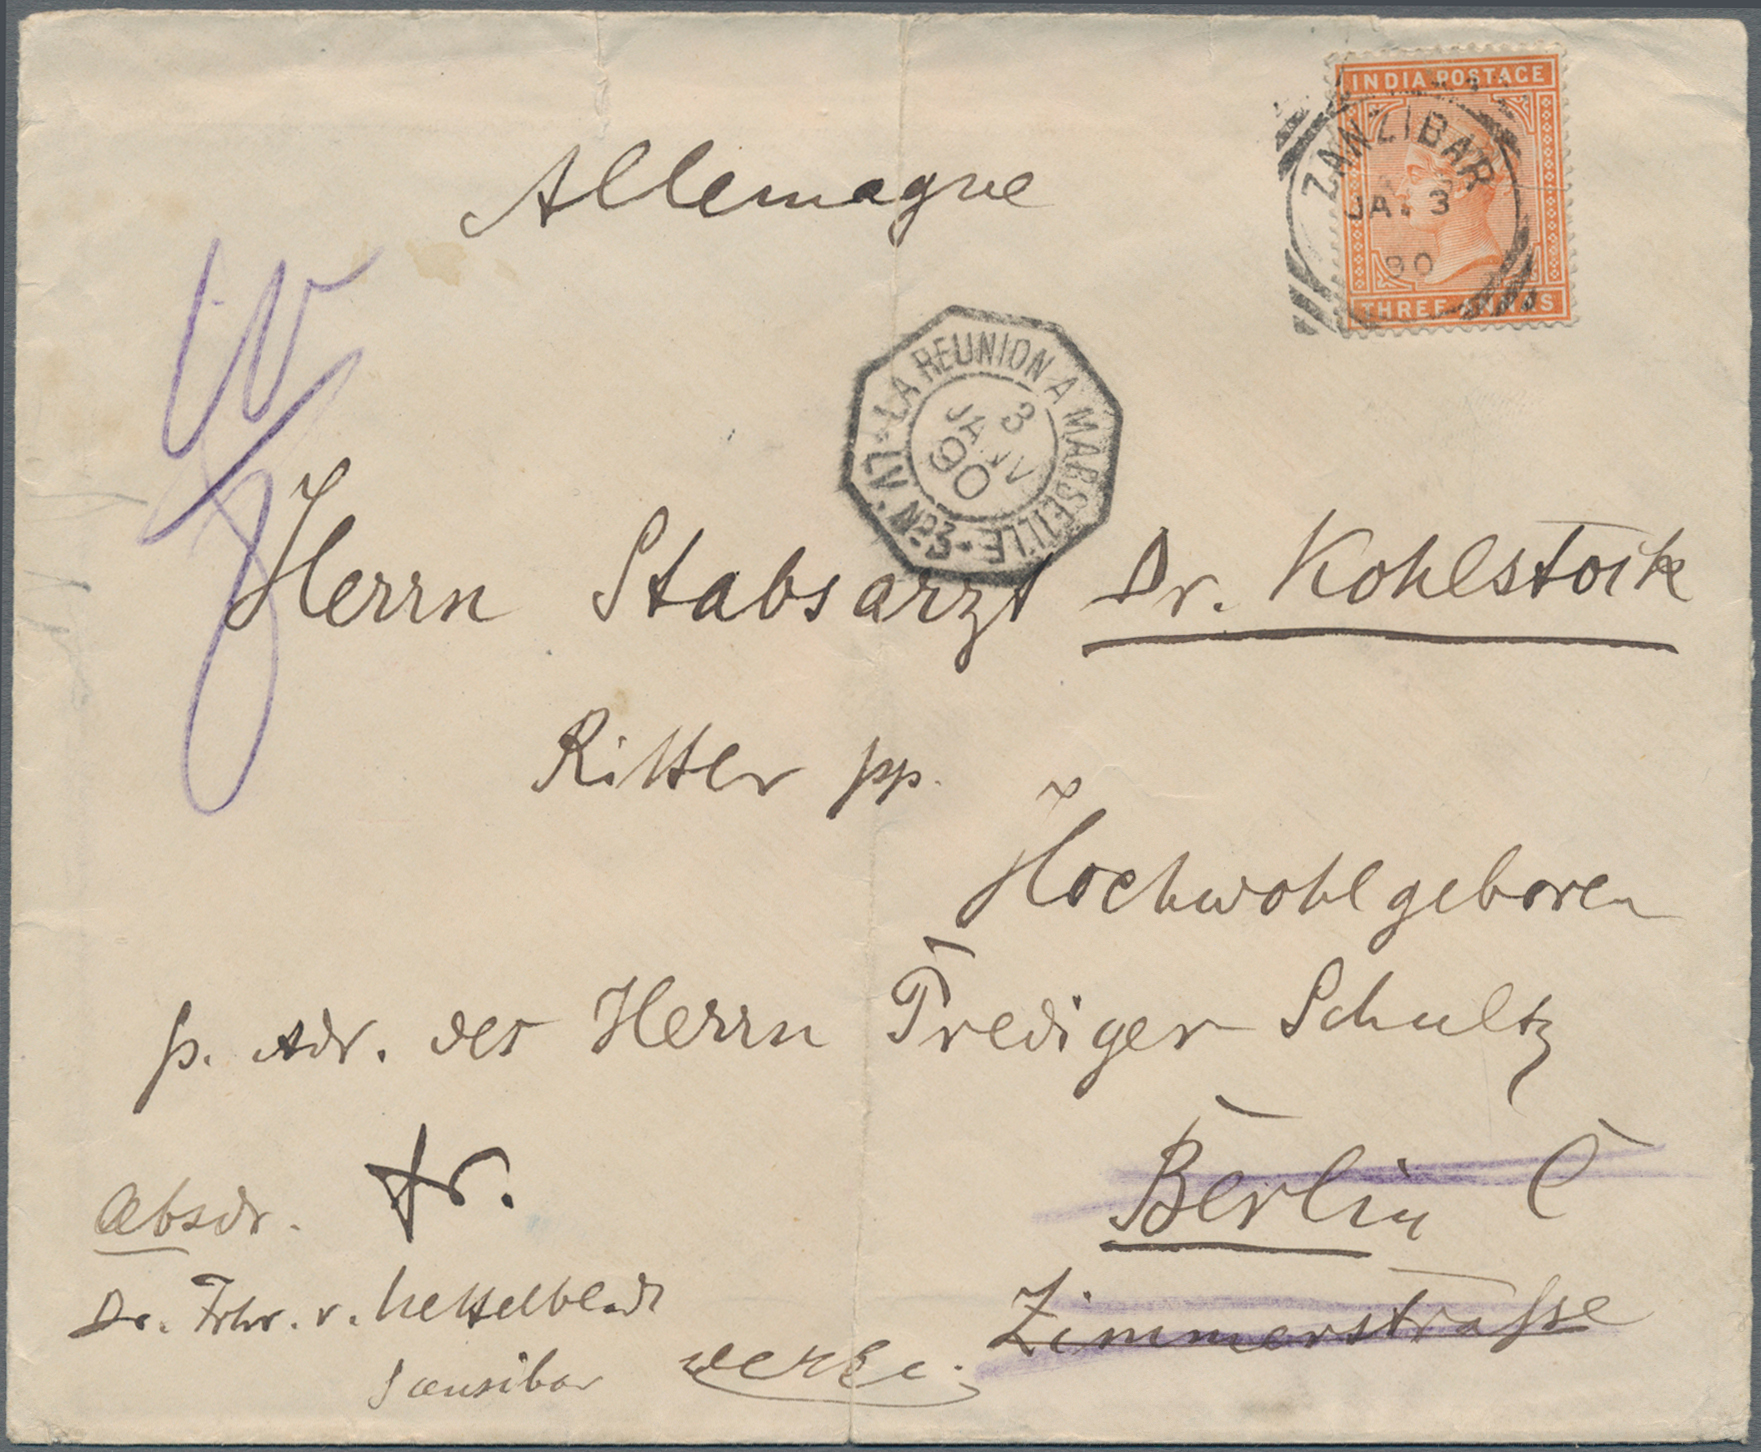 INDIA POSTAGE
ZANZIBAR
JA 3
90
THREE ANNAS
Allemagne
LA REUNION A MARSEILLE
3
JANV
90
LV. Nº3
Herrn Stabsarzt Dr. Kohlstock
Ritter pp.
Hochwohlgeboren
p. Adr. des Herrn Prediger Schultz
Berlin C
Zimmerstraße
fr.
Absdr.
Dr. Frhr. v. Nettelbladt
Sansibar